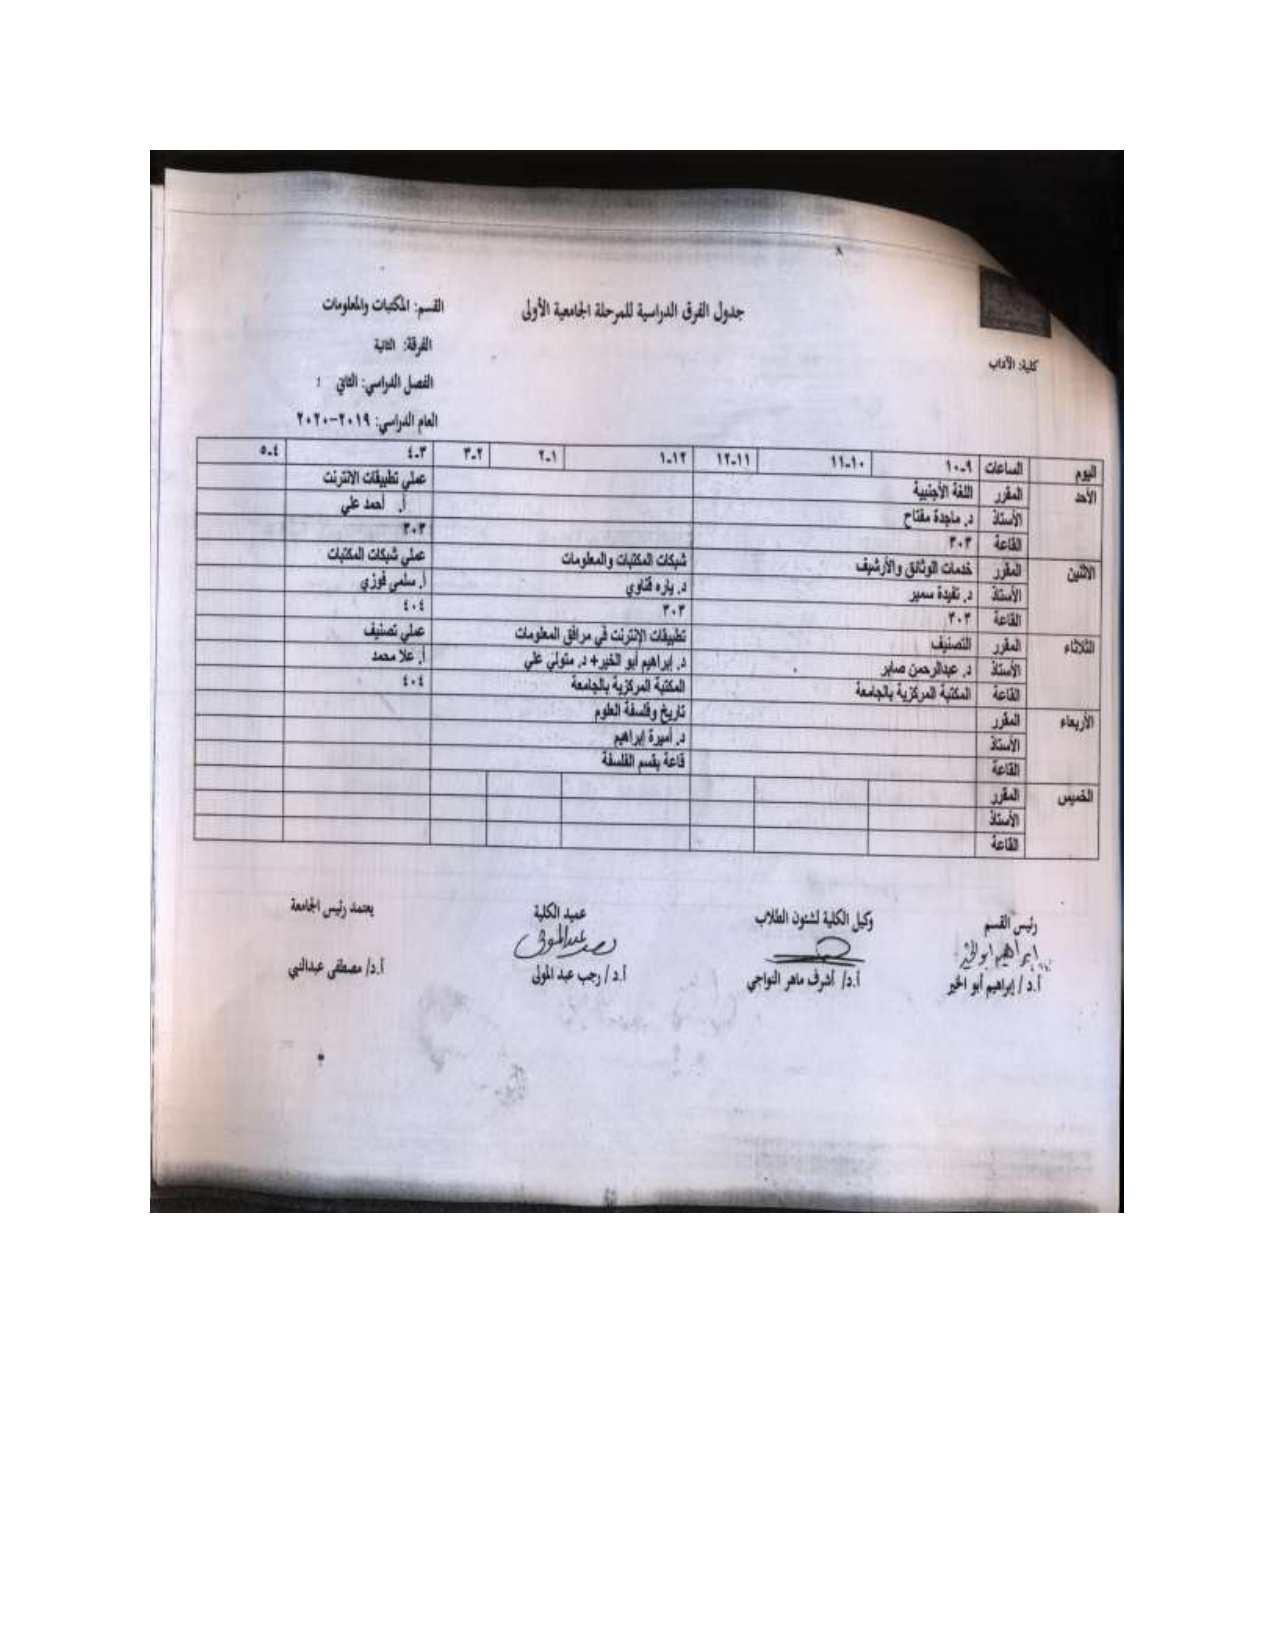 جدول الفرق الدراسية للمرحلة الجامعية الأولى
القسم: المكتبات والمعلومات
كلية: الآداب
الفرقة: الثانية
الفصل الدراسي: الثاني
العام الدراسي: ٢٠١٩-٢٠٢٠
اليوم الساعات ٩-١٠ ١٠-١١ ١١-١٢ ١٢-١ ١-٢ ٢-٣ ٣-٤ ٤-٥
الأحد المقرر اللغة الأجنبية عملي تطبيقات الانترنت
الأستاذ د. ماجدة مفتاح أ. أحمد علي
القاعة ٣٠٣ ٣٠٣
الاثنين المقرر خدمات الوثائق والأرشيف شبكات المكتبات والمعلومات عملي شبكات المكتبات
الأستاذ د. تفيدة سمير د. ياره قناوي أ. سلمى فوزي
القاعة ٢٠٣ ٣٠٣ ٤٠٤
الثلاثاء المقرر التصنيف تطبيقات الإنترنت في مرافق المعلومات عملي تصنيف
الأستاذ د. عبدالرحمن صابر د. إبراهيم أبو الخير+ د. متولي علي أ. علا محمد
القاعة المكتبة المركزية بالجامعة المكتبة المركزية بالجامعة ٤٠٤
الأربعاء المقرر تاريخ وفلسفة العلوم
الأستاذ د. أميرة إبراهيم
القاعة قاعة بقسم الفلسفة
الخميس المقرر
الأستاذ
القاعة
رئيس القسم وكيل الكلية لشئون الطلاب عميد الكلية يعتمد رئيس الجامعة
إبراهيم ابوالخير
أ.د / إبراهيم أبو الخير أ.د/ أشرف ماهر النواجي أ.د / رجب عبد المولى أ.د/ مصطفى عبدالنبي